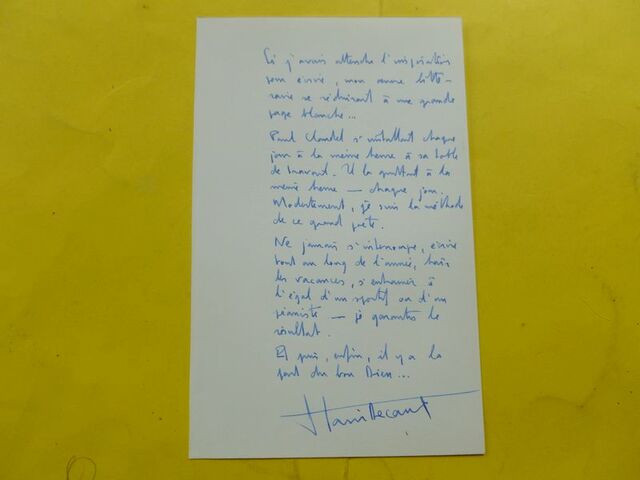 Si j'avais attendu l'inspiration
pour écrire, mon œuvre litté-
raire se réduirait à une grande
page blanche...
Paul Claudel s'installait chaque
jour à la même heure à sa table
de travail. Il la quittait à la
même heure — chaque jour.
Modestement, je suis la méthode
de ce grand poète.
Ne jamais s'interrompre, écrire
tout au long de l'année, haïr
les vacances, s'entraîner à
l'égal d'un sportif ou d'un
pianiste — je garantis le
résultat.
Et puis, enfin, il y a la
part du bon Dieu...